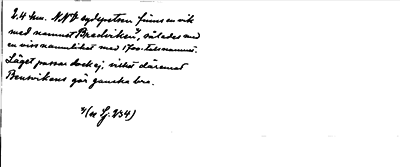 2.4 km. NNV sydspetsen finns en vik
med namnet Bredviken ¹⁾, således med
en viss namnlikhet med 1700-talsnamnet.
Läget passar dock ej, vilket däremot
Bensvikens gör ganska bra.
¹⁾ (a Lj. 234)